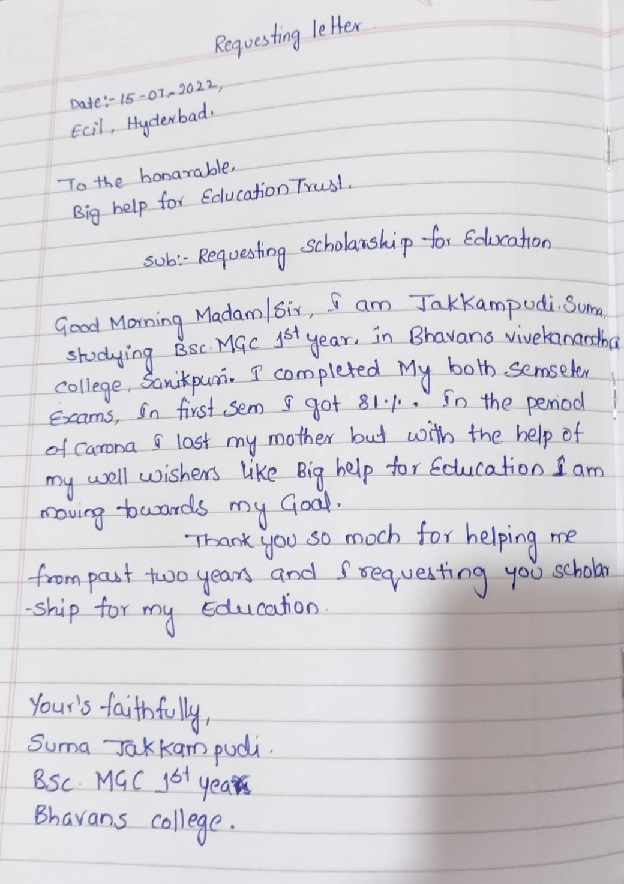 Requesting letter
Date:- 15-07-2022,
Ecil, Hyderbad.
To the honarable,
Big help for Education Trust.
Sub:- Requesting scholarship for Education
Good Morning Madam/Sir, I am Jakkampudi.Suma,
studying Bsc.MGC 1st year, in Bhavans vivekanandha
college, Sanikpuri. I completed My both semseter
Exams, In first sem I got 81%. In the period
of Carona I lost my mother but with the help of
my well wishers like Big help for Education I am
moving towards my Goal.
Thank you so moch for helping me
from past two years and I requesting you scholar
-ship for my Education.
Your's faithfully,
Suma Jakkampudi.
BSC. MGC 1st year
Bhavans college.